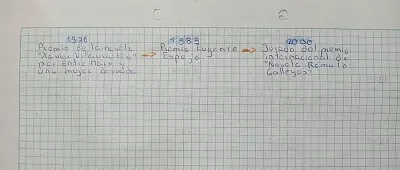 1976
Premio de la novela
"Xavier Villaurrutia"
por Entre Marx y
una mujer desnuda
1989
Premio Eugenio
Espejo
2000
Jurado del premio
internacional de
"Novela Rómulo
Gallegos"